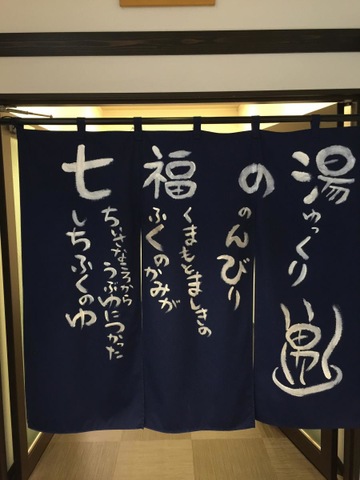 七福の湯
ゆっくり
男
のんびり
くまもとましきの
ふくのかみが
ちいさなころから
うぶゆにつかった
しちふくのゆ